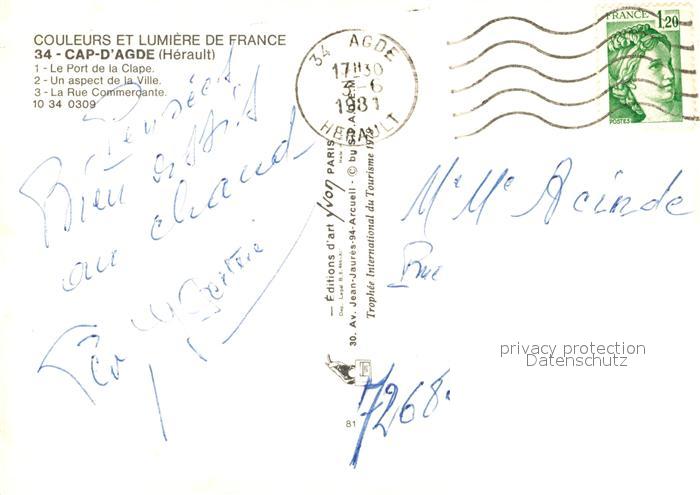 COULEURS ET LUMIÈRE DE FRANCE
34 - CAP-D'AGDE (Hérault)
1 - Le Port de la Clape.
2 - Un aspect de la Ville.
3 - La Rue Commerçante.
10 34 0309
Pensées
Bien
au chaud
34 AGDE
17H30
3-6
1981
HERAULT
FRANCE
1,20
POSTES
Éditions d'art Yvon PARIS
30. Av. Jean-Jaurès-94-Arcueil - © by S.P.A.D.E.M.
Trophée International du Tourisme 1973
Mr Me Acinde
Rue
privacy protection
Datenschutz
81
7268